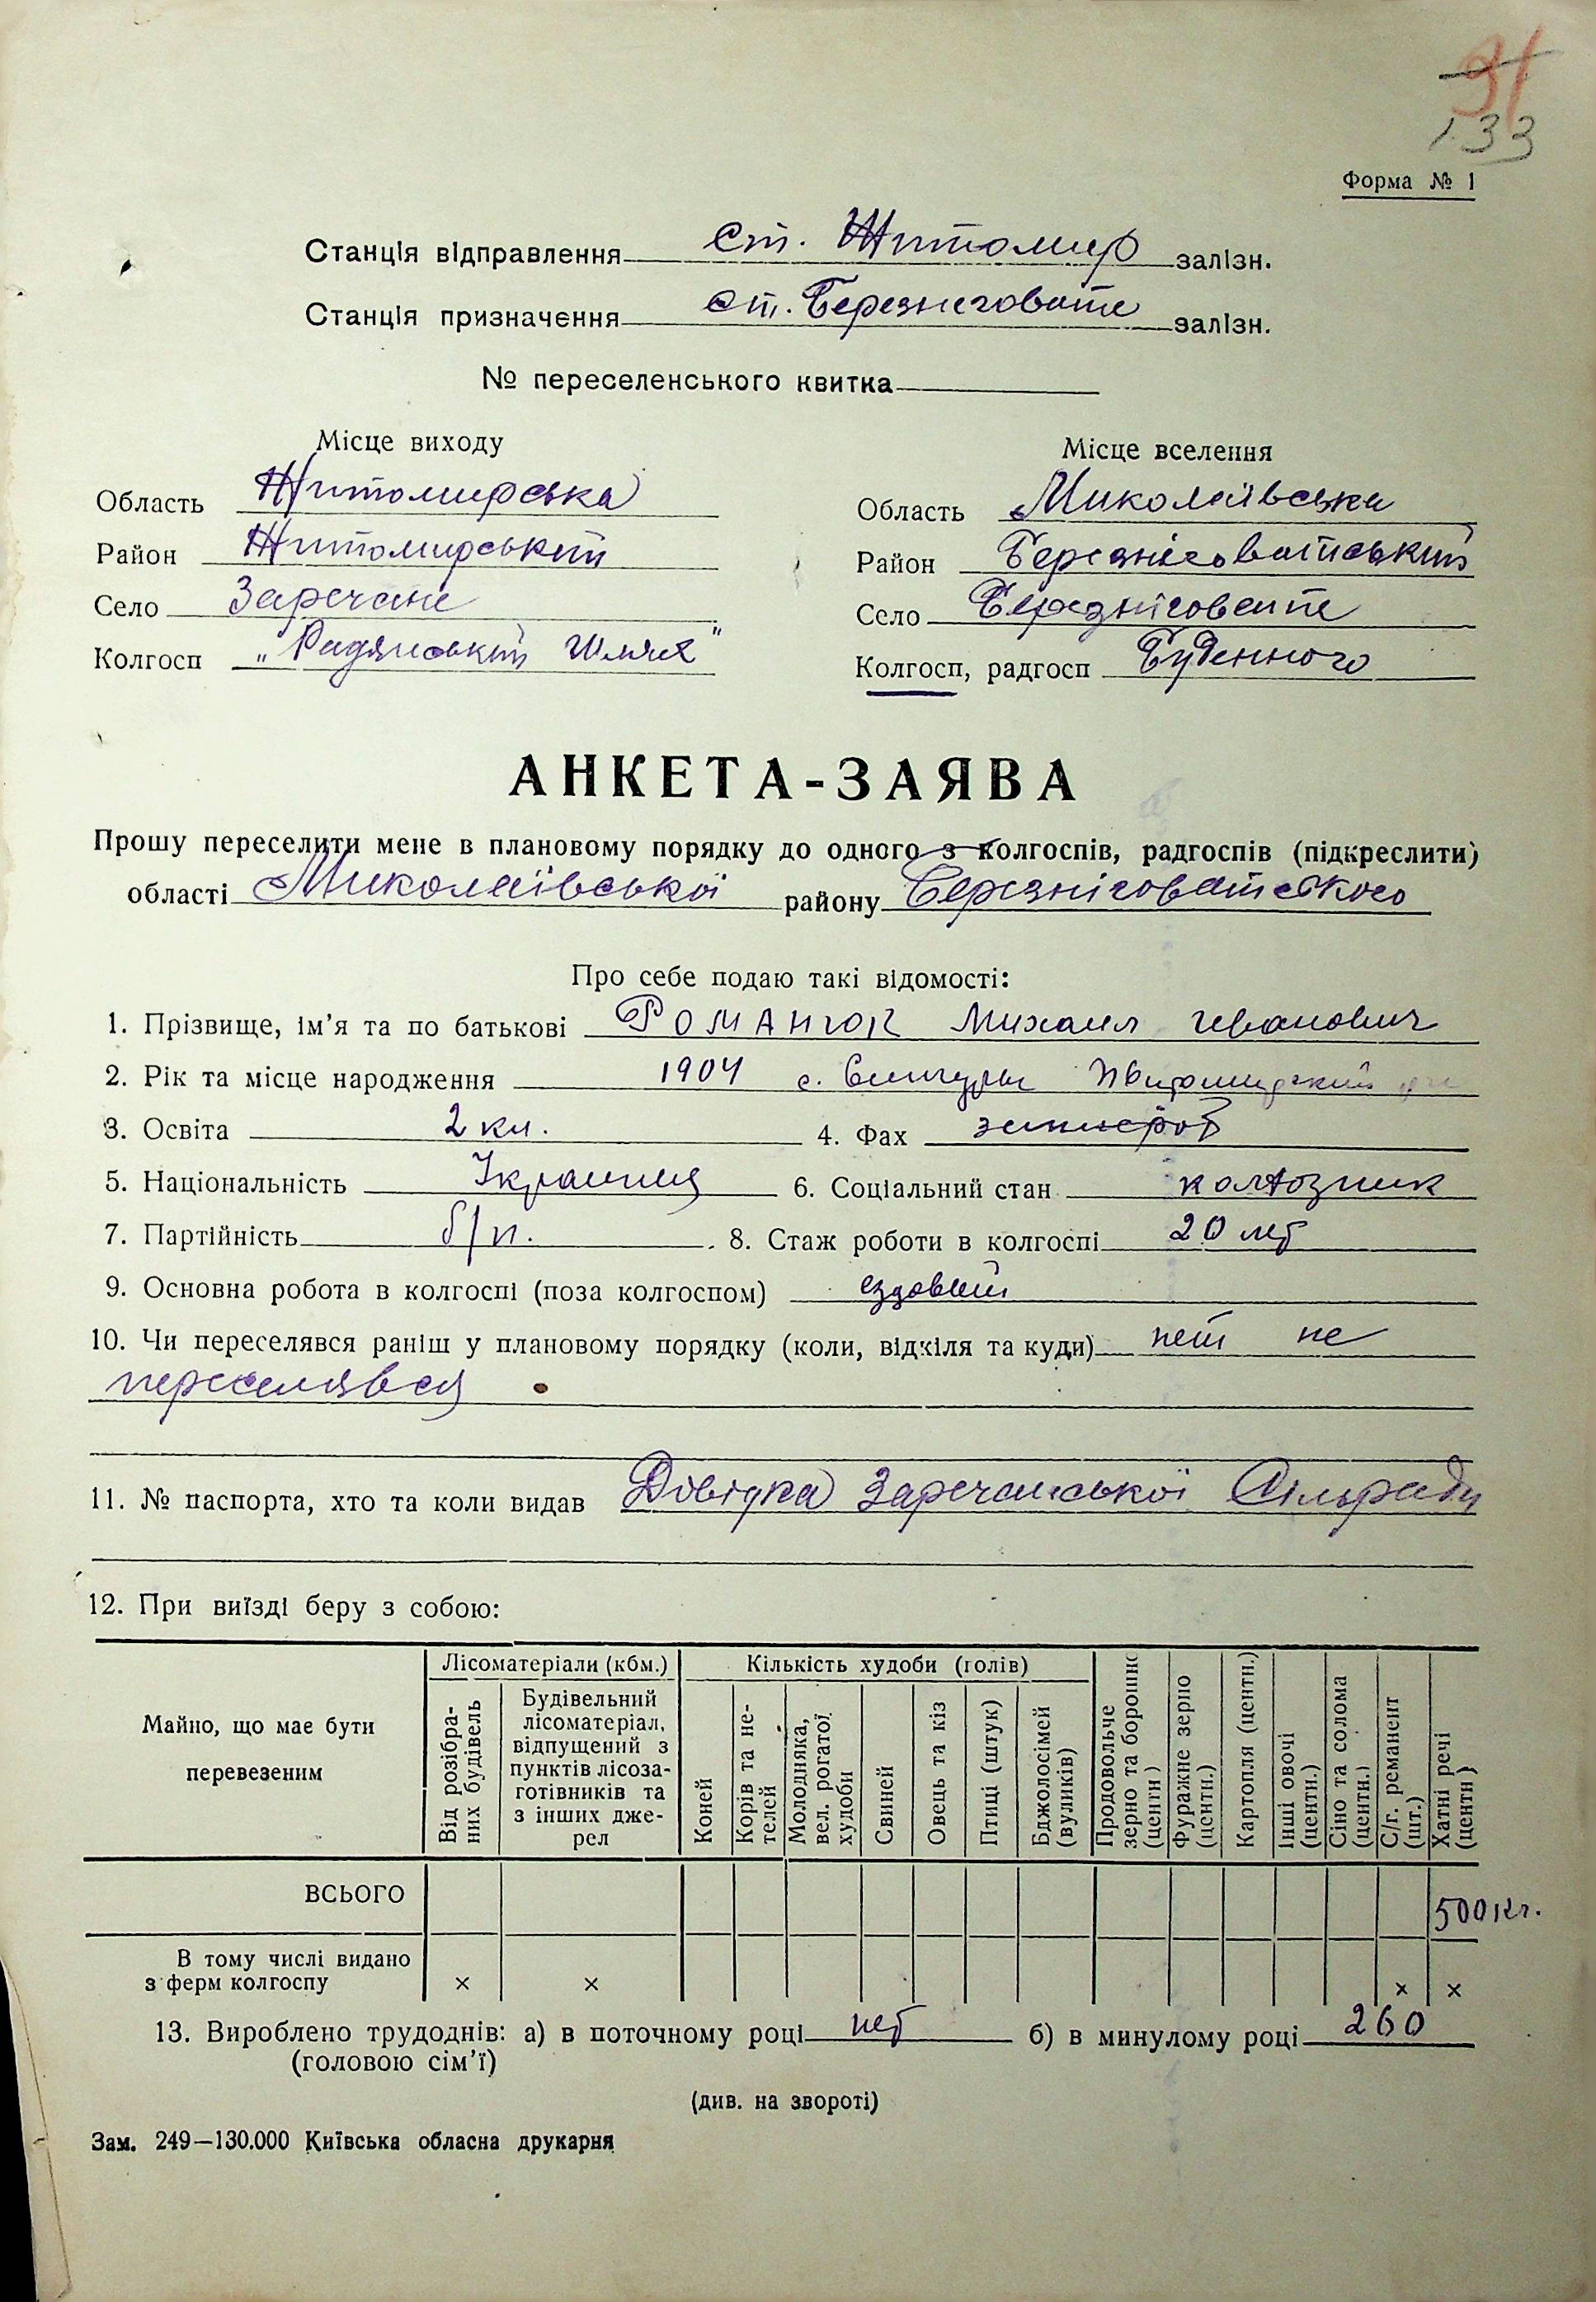 31
133
Форма № 1
Станція відправлення ст. Житомир залізн.
Станція призначення ст. Березнеговате залізн.
№ переселенського квитка
Місце виходу
Область Житомирська
Район Житомирський
Село Заречане
Колгосп „Радянський Шлях"
Місце вселення
Область Миколаївська
Район Березніговатський
Село Березніговате
Колгосп, радгосп Буденного
АНКЕТА-ЗАЯВА
Прошу переселити мене в плановому порядку до одного з колгоспів, радгоспів (підкреслити)
області Миколаївської району Березніговатського
Про себе подаю такі відомості:
1. Прізвище, ім'я та по батькові РОМАНЮК Михаил Иванович
2. Рік та місце народження 1904 с. Сингури Житомирский
3. Освіта 2 кл. 4. Фах землероб
5. Національність Українец 6. Соціальний стан колхозник
7. Партійність б/п. 8. Стаж роботи в колгоспі 20 лет
9. Основна робота в колгоспі (поза колгоспом) ездовый
10. Чи переселявся раніш у плановому порядку (коли, відкіля та куди) нет не
переселявся
11. № паспорта, хто та коли видав Довідка Заречанської Сільради
12. При виїзді беру з собою:
Майно, що має бути перевезеним
Лісоматеріали (кбм.)
Від розібраних будівель
Будівельний лісоматеріал, відпущений з пунктів лісозаготівників та з інших джерел
Кількість худоби (голів)
Коней
Корів та нетелей
Молодняка, вел. рогатої худоби
Свиней
Овець та кіз
Птиці (штук)
Бджолосімей (вуликів)
Продовольче зерно та борошно (центн)
Фуражне зерно (центн.)
Картопля (центн.)
Інші овочі (центн.)
Сіно та солома (центн.)
С/г. реманент (шт.)
Хатні речі (центн)
ВСЬОГО 500 кг.
В тому числі видано
з ферм колгоспу × × × ×
13. Вироблено трудоднів: а) в поточному році нет б) в минулому році 260
(головою сім'ї)
(див. на звороті)
Зам. 249—130.000 Київська обласна друкарня